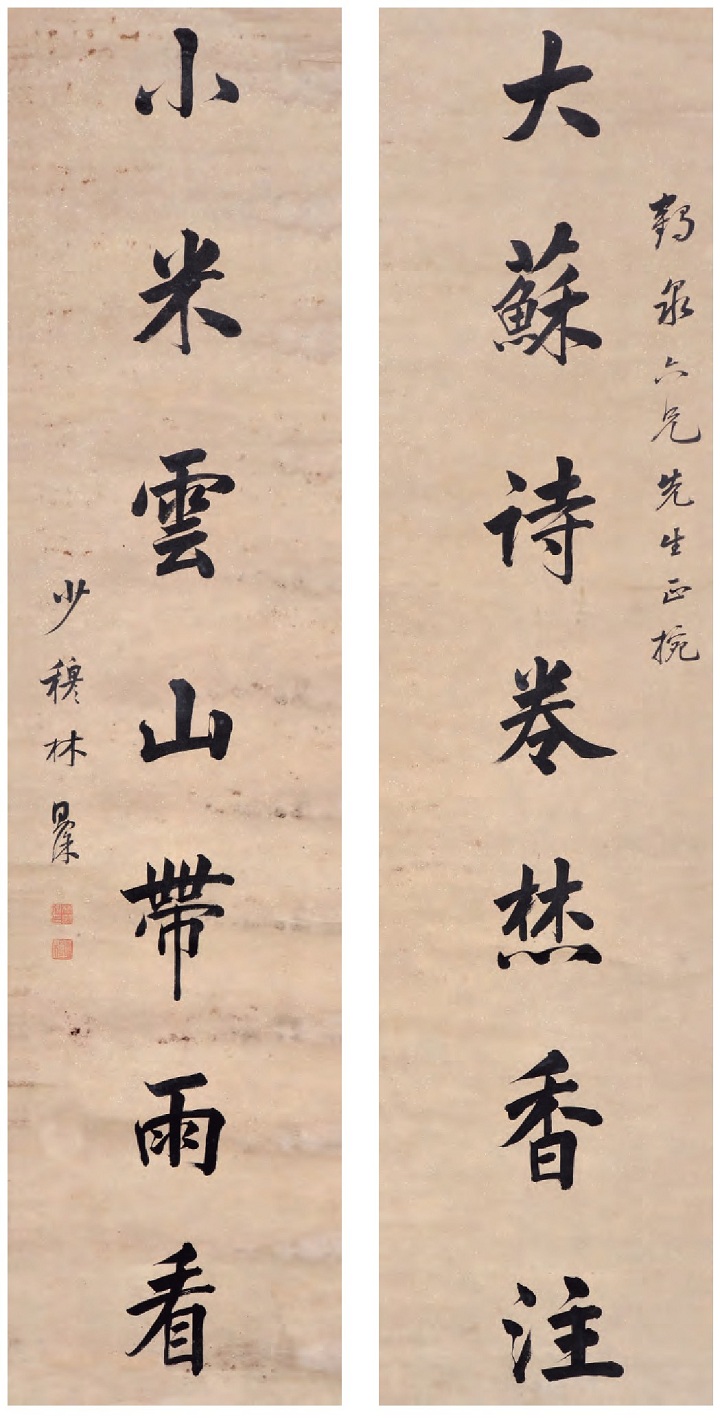 鹤泉六兄先生正捥
大蘇诗卷焚香注
小米雲山帶雨看
少穆林